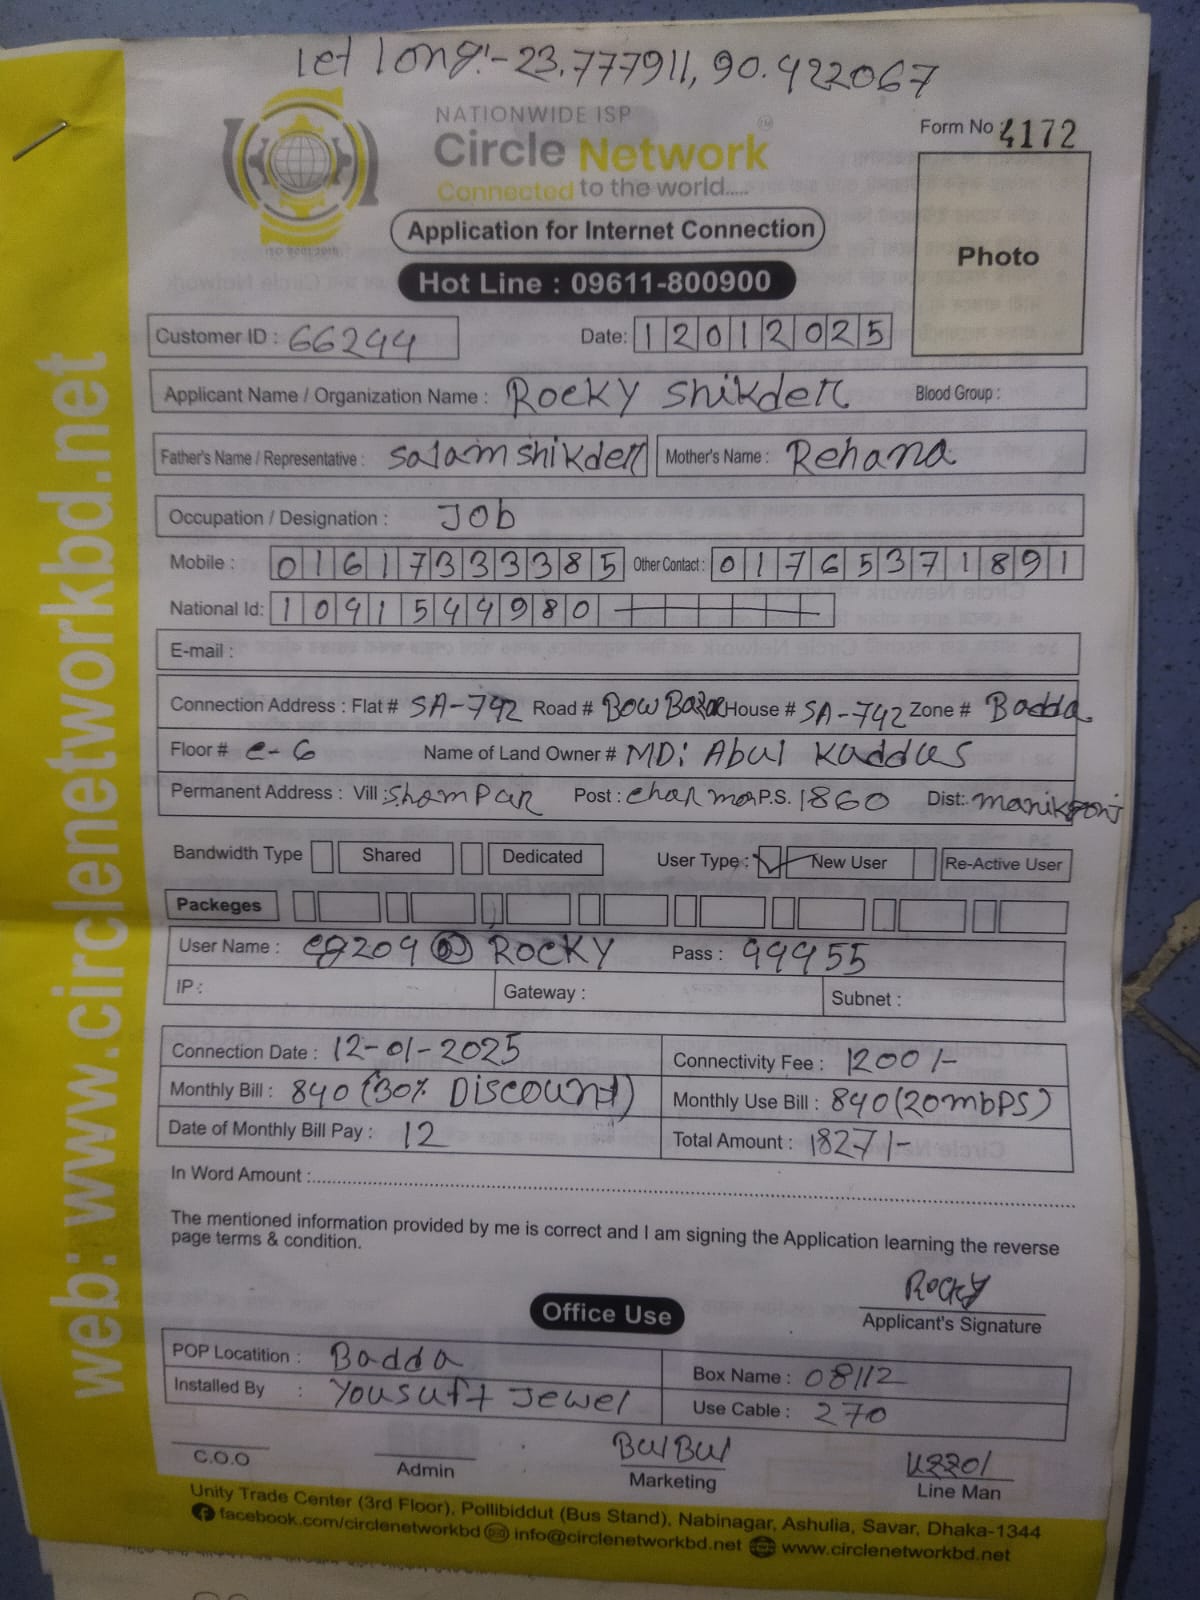 Let long:- 23.777911, 90.422067
NATIONWIDE ISP
Circle Network
Connected to the world.....
ISO 9001:2015
Form No : 4172
Application for Internet Connection
Photo
Hot Line : 09611-800900
Customer ID : 66294 Date: 12012025
Applicant Name / Organization Name : Rocky Shikder Blood Group :
Father's Name / Representative : Salam Shikder Mother's Name : Rehana
Occupation / Designation : Job
Mobile : 01617333385 Other Contact : 01765371891
National Id: 1091544980
E-mail :
Connection Address : Flat # SA-742 Road # Bow Bazar House # SA-742 Zone # Badda
Floor # e-6 Name of Land Owner # MD: Abul Kaddus
Permanent Address : Vill : Shampar Post : Char mor P.S. 1860 Dist: manikgonj
Bandwidth Type Shared Dedicated User Type : New User Re-Active User
Packeges
User Name : @ ROCKY Pass : 99955
IP : Gateway : Subnet :
Connection Date : 12-01-2025 Connectivity Fee : 1200/-
Monthly Bill : 840 (30% Discount) Monthly Use Bill : 840 (20mbPS)
Date of Monthly Bill Pay : 12 Total Amount : 1827/-
In Word Amount :
The mentioned information provided by me is correct and I am signing the Application learning the reverse
page terms & condition.
Rocky
Applicant's Signature
Office Use
POP Locatition : Badda Box Name : 08112
Installed By : Yousuf + Jewel Use Cable : 270
C.O.O Admin BulBul Marketing Uzzol Line Man
Unity Trade Center (3rd Floor), Pollibiddut (Bus Stand), Nabinagar, Ashulia, Savar, Dhaka-1344
facebook.com/circlenetworkbd info@circlenetworkbd.net www.circlenetworkbd.net
web: www.circlenetworkbd.net